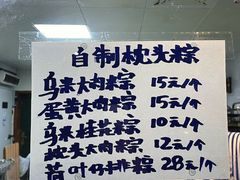 自制枕头粽
乌米大肉粽 15元/个
蛋黄大肉粽 15元/个
乌米桂花粽 10元/个
枕头大肉粽 12元/个
叶仔排粽 28元/个